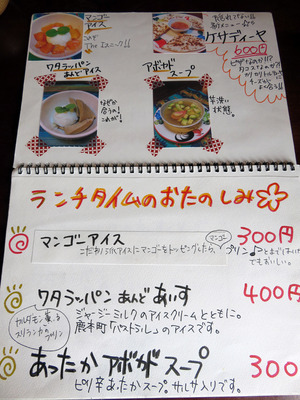 マンゴー
アイス
The エスニック!!
ケサディーヤ
600円
ピザなのか!?
タコスなのか?
チーズが
ワタラッパン
あんどアイス
なぜか
合うの!
これが!
アボガド
スープ
辛洗い
状態。
ランチタイムのおたのしみ
マンゴーアイス
300円
こだわりのアイスにマンゴーをトッピングしたら、
マンゴー
プリン♪
でもおいしい。
ワタラッパン あんど あいす
400円
カルダモン薫る
スリランカの
プリン
ジャージーミルクのアイスクリームとともに。
鹿本町「パストラル」のアイスです。
あったか アボガ スープ
300
ピリ辛あったかスープ。サルサ入りです。